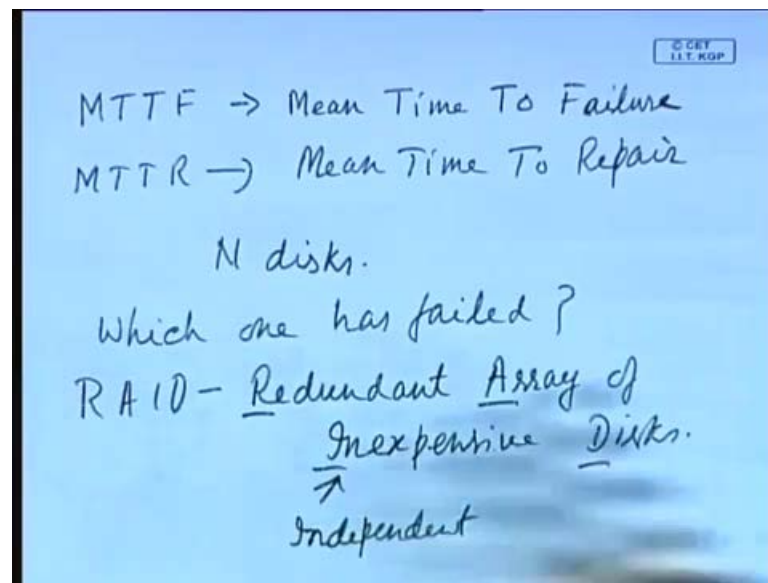 © CET
I.I.T. KGP
MTTF → Mean Time To Failure
MTTR → Mean Time To Repair
N disks.
Which one has failed?
RAID - Redundant Array of
Inexpensive Disks.
Independent